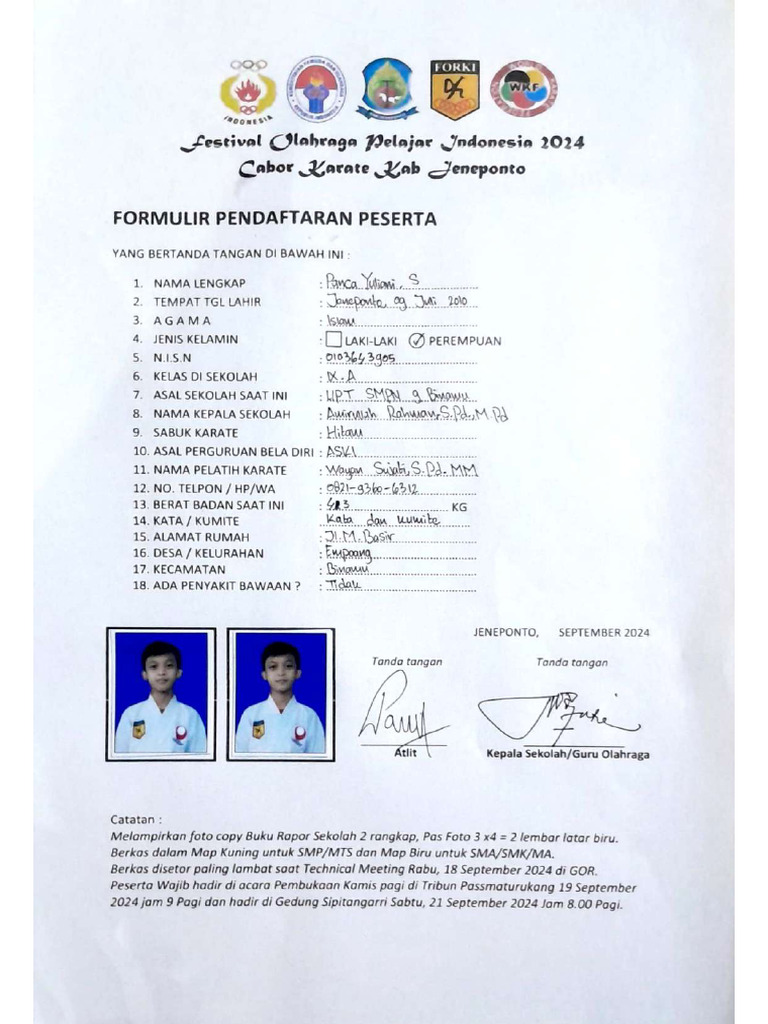 INDONESIA
FORKI
WKF
Festival Olahraga Pelajar Indonesia 2024
Cabor Karate Kab Jeneponto
FORMULIR PENDAFTARAN PESERTA
YANG BERTANDA TANGAN DI BAWAH INI :
1. NAMA LENGKAP : Panca Yuliani. S
2. TEMPAT TGL LAHIR : Jeneponto, 09 Juli 2010
3. A G A M A : Islam
4. JENIS KELAMIN : LAKI-LAKI ✓ PEREMPUAN
5. N.I.S.N : 0103643905
6. KELAS DI SEKOLAH : IX.A
7. ASAL SEKOLAH SAAT INI : UPT SMPN 9 Binamu
8. NAMA KEPALA SEKOLAH : Rahman, S.Pd., M.Pd
9. SABUK KARATE : Hitam
10. ASAL PERGURUAN BELA DIRI : ASKI
11. NAMA PELATIH KARATE : Wayan Sujati, S.Pd. MM
12. NO. TELPON / HP/WA : 0821-9360-6312
13. BERAT BADAN SAAT INI : KG
14. KATA / KUMITE : Kata dan Kumite
15. ALAMAT RUMAH : Jl. M. Basir
16. DESA / KELURAHAN : Empoang
17. KECAMATAN : Binamu
18. ADA PENYAKIT BAWAAN ? : Tidak
JENEPONTO, SEPTEMBER 2024
Tanda tangan Tanda tangan
Atlit Kepala Sekolah/Guru Olahraga
Catatan :
Melampirkan foto copy Buku Rapor Sekolah 2 rangkap, Pas Foto 3 x4 = 2 lembar latar biru.
Berkas dalam Map Kuning untuk SMP/MTS dan Map Biru untuk SMA/SMK/MA.
Berkas disetor paling lambat saat Technical Meeting Rabu, 18 September 2024 di GOR.
Peserta Wajib hadir di acara Pembukaan Kamis pagi di Tribun Passmaturukang 19 September
2024 jam 9 Pagi dan hadir di Gedung Sipitangarri Sabtu, 21 September 2024 Jam 8.00 Pagi.